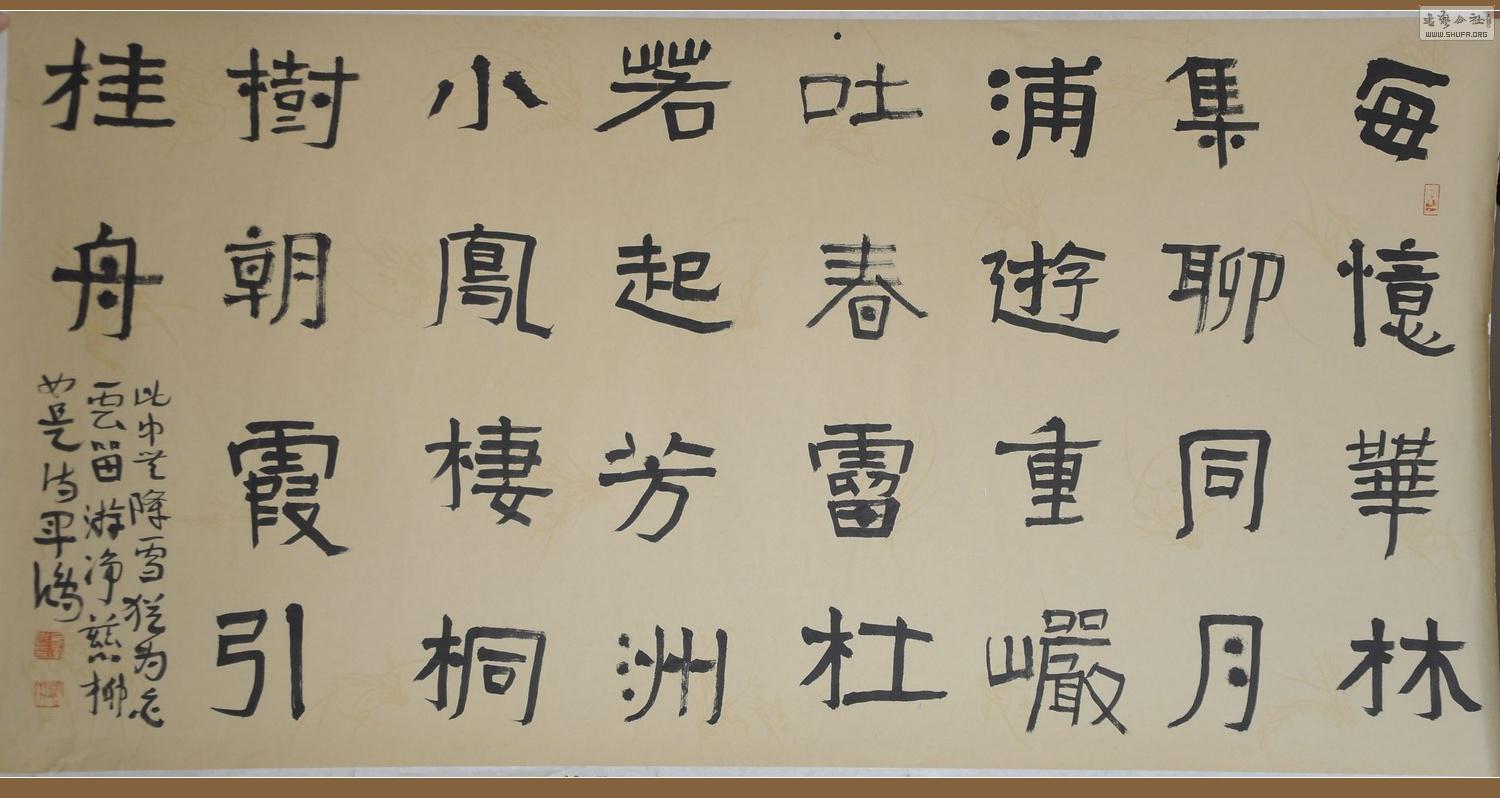 每憶華林
集聊同月
浦遊重巖
吐春雷杜
若起芳洲
小鳳棲桐
樹朝霞引
桂舟
此中 降雪猶為
雲留游淨慈柳
如是
WWW.SHUFA.ORG